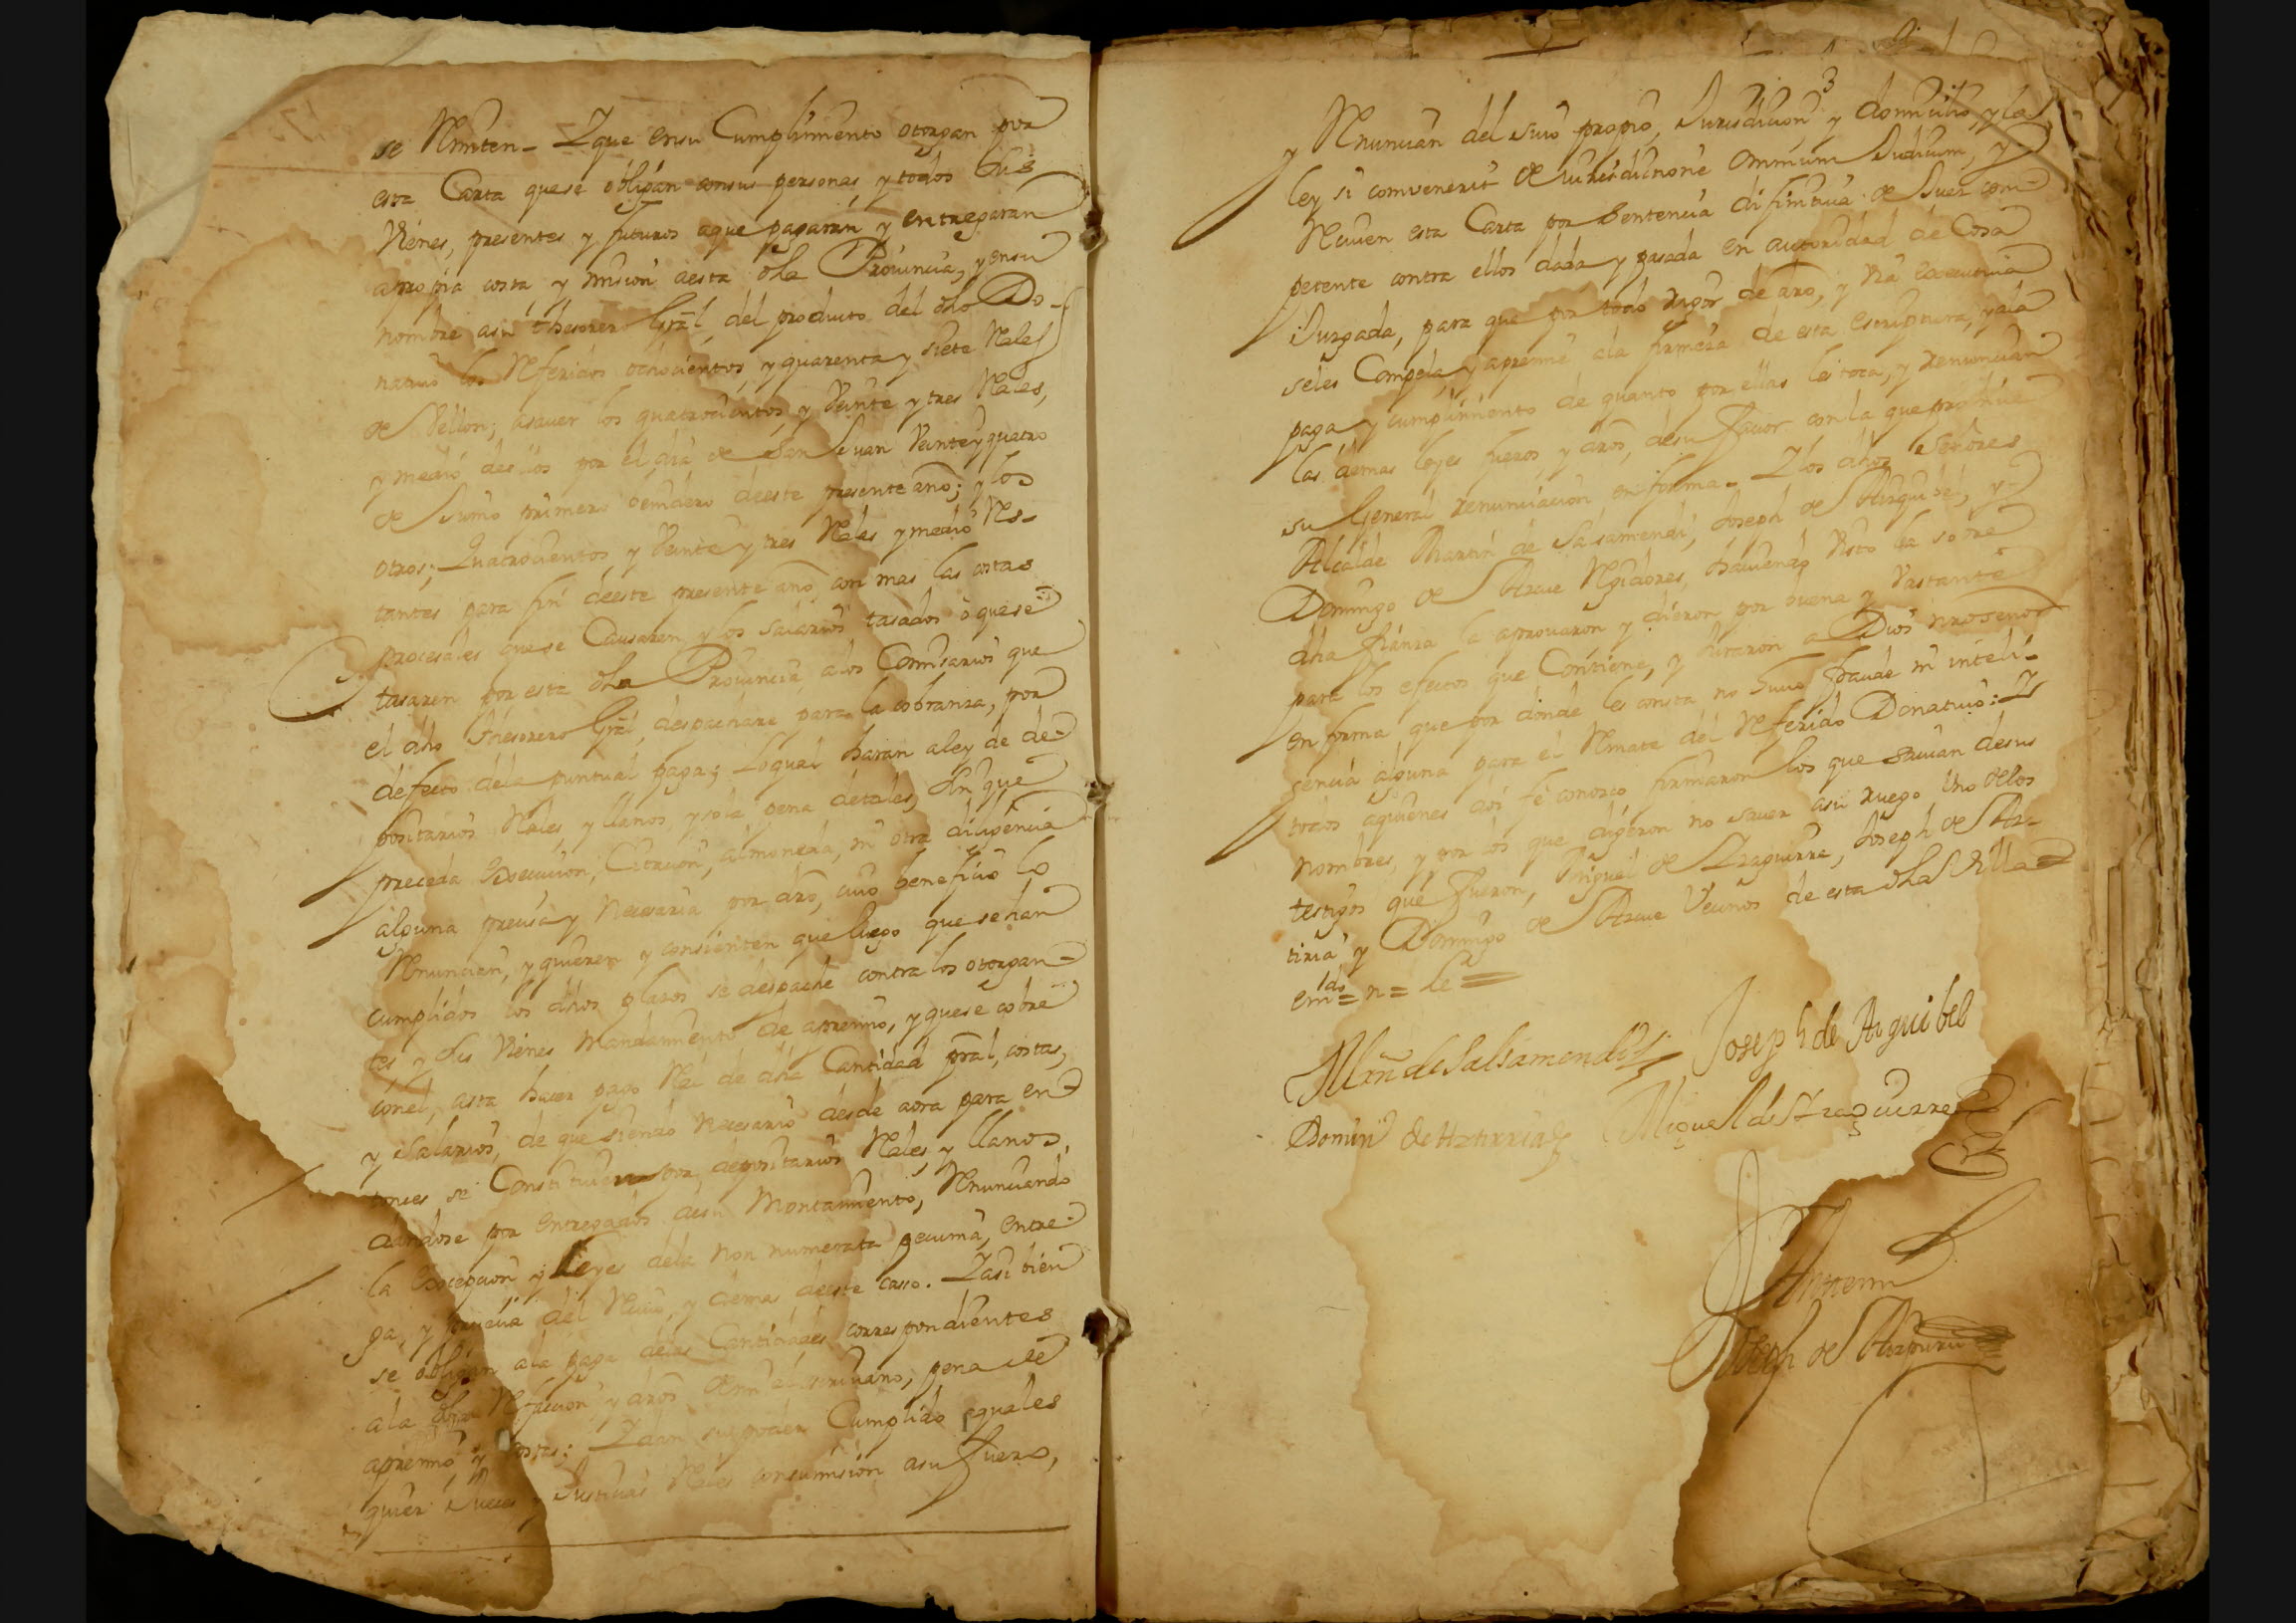 se Remiten_ Y que ensu Cumplimiento otorgan por
esta Carta quese obligan consus personas, y todos sus
Vienes, presentes y futuros aque pagaran y entregaran
apropia costa y mision aesta dha Provincia, y ensu
nombre asu thesorero Gral, del producto del dho Do-
nativo los Referidos ochocientos, y quarenta y siete Reales
de Vellon; asaver los quatrocientos, y Veinte y tres Reales,
y medio dellos por el dia de San Juan Veinte y quatro
de Junio primero venidero deeste presente año; y los
otros; Quatrocientos, y Veinte y tres Reales y medio Res-
tantes para fin deeste presente año, con mas las costas
procesales quese Causaren, y los salarios tasados o quese
tasaren por esta dha Provincia alos Comisarios que
el dho thesorero Gral, despachare para la cobranza, por
defecto dela puntual paga; Loqual haran aley de de-
positarios Reales, y llanos y sola pena detales, sin que
preceda Execucion, Citacion, almoneda, ni otra diligencia
alguna precisa y Necesaria por dro, cuio beneficio lo
Renuncian, y quieren y consienten que luego que sehan
cumplidos los dhos plazos se despache contra los otorgan-
tes y sus Vienes mandamiento de apremio, y quese cobre
conel, asta hacer pago Real de dha Cantidad pral, costas,
y Salarios, de que siendo necesario desde aora para en-
tonces se Constituien por depositarios Reales y llanos,
dandose por entregados desu Montamiento, Renunciando
la Excepcion y leyes dela non numerata pecunia, entre-
ga, y prueva del Recivo, y dema deeste caso. Y asi bien
se obligan ala paga delas Cantidades correspondientes
ala dha Refaccion y dros demi el escrivano, pena de
apremio y costas: Y dan su poder Cumplido aquales
quier Jueces y Justicias Reales consumision asu fuero,
3
y Renuncian del suio propio, Jurisdicion y domicilio, y la
ley si combenerit de iurisdictione omnium Judicum, y
Reciven esta Carta por Sentencia difinitiva de Juez com-
petente contra ellos dada y pasada en autoridad de Cosa
Juzgada, para que por todo rigor de dro, y via executiva
seles Compela, y apremie ala firmeza de esta escriptura, y ala
paga y cumplimiento de quanto por ellas les toca, y renuncian
las demas leyes fueros, y dros, desu favor con la que prohive
su General renunciacion en forma_ Y los dhos Señores
Alcalde Martin de Salsamendi, Joseph de Arguibel, y
Domingo de Arcue Regidores, haviendo visto la sobre
dha fianza la aprovaron y dieron por buena y Vastante
para los efectos que Contiene, y Juraron a Dios nro señor
en forma que por donde les consta no huvo fraude ni inteli-
gencia alguna para el Remate del Referido Donativo: Y
todos aquienes doi fe conozco firmaron los que savian desus
nombres, y por los que digeron no saver asu ruego Uno delos
testigos que fueron, Miguel de Yzaguirre, Joseph de Ar-
tiria y Domingo de Arcue Vecinos de esta dha Villa=
emdo = n = le =
Mrn de Salsamendi Joseph de Arguibel
Domin de Artirria Miguel de Yzaguirre
Antemi
Joseph de Aizpuru